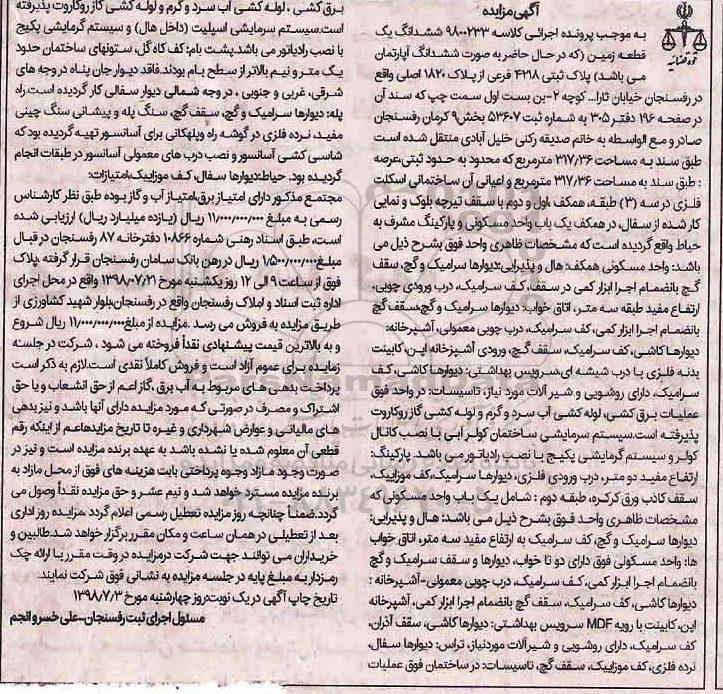 آگهی مزایده
به موجب پرونده اجرائی کلاسه ۹۸۰۰۲۳۳ ششدانگ یک
قطعه زمین (که در حال حاضر به صورت ششدانگ آپارتمان
می باشد) پلاک ثبتی ۴۲۱۸ فرعی از پلاک ۱۸۲۰ اصلی واقع
در رفسنجان خیابان ثارا... کوچه ۲-بن بست اول سمت چپ که سند آن
در صفحه ۱۹۶ دفتر ۳۰۵ به شماره ثبت ۵۳۶۰۷ بخش۹ کرمان رفسنجان
صادر و مع الواسطه به خانم صدیقه رکنی خلیل آبادی منتقل شده است
طبق سند به مساحت ۳۱۷/۳۶ مترمربع که محدود به حدود ثبتی،عرصه
: طبق سند به مساحت ۳۱۷/۳۶ مترمربع و اعیانی آن ساختمانی اسکلت
فلزی در سه (۳) طبقه، همکف ،اول و دوم با سقف تیرچه بلوک و نمایی
کار شده از سفال، در همکف یک باب واحد مسکونی و پارکینگ مشرف به
حیاط واقع گردیده است که مشخصات ظاهری واحد فوق بشرح ذیل می
باشد: واحد مسکونی همکف: هال و پذیرایی:دیوارها سرامیک و گچ، سقف
گچ بانضمام اجرا ابزار کمی در سقف، کف سرامیک، درب ورودی چوبی،
ارتفاع مفید طبقه سه متر، اتاق خواب: دیوارها سرامیک و گچ،سقف گچ
بانضمام اجرا ابزار کمی، کف سرامیک، درب چوبی معمولی، آشپزخانه:
دیوارها کاشی، کف سرامیک، سقف گچ، ورودی آشپزخانه اپن، کابینت
بدنه فلزی با درب شیشه ای،سرویس بهداشتی: دیوارها کاشی، کف
سرامیک، دارای روشویی و شیر آلات مورد نیاز، تاسیسات: در واحد فوق
عملیات برق کشی، لوله کشی آب سرد و گرم و لوله کشی گاز روکاروت
پذیرفته است.سیستم سرمایشی ساختمان کولر آبی با نصب کانال
کولر و سیستم گرمایشی پکیج با نصب رادیاتور می باشد. پارکینگ:
ارتفاع مفید دو متر، درب ورودی فلزی، دیوارها سرامیک،کف موزاییک،
سقف کاذب ورق کرکره، طبقه دوم : شامل یک باب واحد مسکونی که
مشخصات ظاهری واحد فوق بشرح ذیل می باشد: هال و پذیرایی:
دیوارها سرامیک و گچ، کف سرامیک به ارتفاع مفید سه متر، اتاق خواب
ها: واحد مسکونی فوق دارای دو تا خواب، دیوارها و سقف سرامیک و گچ
بانضمام اجرا ابزار کمی، کف سرامیک، درب چوبی معمولی-آشپرخانه :
دیوارها کاشی، کف سرامیک، سقف گچ بانضمام اجرا ابزار کمی، آشپزخانه
اپن، کابینت با رویه MDF سرویس بهداشتی: دیوارها کاشی، سقف آذران،
کف سرامیک، دارای روشویی و شیرآلات موردنیاز، تراس: دیوارها سفال،
نرده فلزی، کف موزاییک، سقف گچ، تاسیسات: در ساختمان فوق عملیات
برق کشی ، لوله کشی آب سرد و گرم و لوله کشی گاز روکاروت پذیرفته
است.سیستم سرمایشی اسپلیت (داخل هال) و سیستم گرمایشی پکیج
با نصب رادیاتور می باشد.پشت بام: کف کاه گل، ستونهای ساختمان حدود
یک متر و نیم بالاتر از سطح بام بودند.فاقد دیوار جان پناه در وجه های
شرقی، غربی و جنوبی ، در وجه شمالی دیوار سفالی کار گردیده است.راه
پله: دیوارها سرامیک و گچ، سقف گچ، سنگ پله و پیشانی سنگ چینی
مفید، نرده فلزی در گوشه راه وپلهکانی برای آسانسور تهیه گردیده بود که
شاسی کشی آسانسور و نصب درب های معمولی آسانسور در طبقات انجام
گردیده بود. حیاط:دیوارها سفال، کف موزاییک،امتیازات:
مجتمع مذکور دارای امتیاز برق،امتیاز آب و گاز بوده طبق نظر کارشناس
رسمی به مبلغ ۱۱/۰۰۰/۰۰۰/۰۰۰ ریال (یازده میلیارد ریال) ارزیابی شده
است، طبق اسناد رهنی شماره ۱۰۸۶۶ دفترخانه ۸۷ رفسنجان در قبال
مبلغ۱/۵۰۰/۰۰۰/۰۰۰ ریال در رهن بانک سامان رفسنجان قرار گرفته ،پلاک
فوق از ساعت ۹ الی ۱۲ روز یکشنبه مورخ ۱۳۹۸/۰۷/۲۱ واقع در محل اجرای
اداره ثبت اسناد و املاک رفسنجان واقع در رفسنجان،بلوار شهید کشاورزی از
طریق مزایده به فروش می رسد .مزایده از مبلغ۱۱/۰۰۰/۰۰۰/۰۰۰ ریال شروع
و به بالاترین قیمت پیشنهادی نقداً فروخته می شود ، شرکت در جلسه
زمایده برای عموم آزاد است و فروش کاملاً نقدی است.لازم به ذکر است
پرداخت بدهی های مربوط به آب برق ،گاز اعم از حق انشعاب و یا حق
اشتراک و مصرف در صورتی که مورد مزایده دارای آنها باشد و نیز بدهی
های مالیاتی و عوارض شهرداری و غیره تا تاریخ مزایدهاعم از اینکه رقم
قطعی آن معلوم شده یا نشده باشد به عهده برنده مزایده است و نیز در
صورت وجود مازاد وجوه پرداختی بابت هزینه های فوق از محل مازاد به
برنده مزایده مسترد خواهد شد و نیم عشر و حق مزایده نقداً وصول می
گردد.ضمناً چنانچه روز مزایده تعطیل رسمی اعلام گردد ،مزایده روز اداری
بعد از تعطیلی در همان ساعت و مکان مقرر برگزار خواهد شد.طالبین و
خریداران می توانند جهت شرکت درمزایده در وقت مقرر با ارائه چک
رمزدار به مبلغ پایه در جلسه مزایده به نشانی فوق شرکت نمایند.
تاریخ چاپ آگهی در یک نوبت:روز چهارشنبه مورخ ۱۳۹۸/۷/۳
مسئول اجرای ثبت رفسنجان-علی خسرو انجم